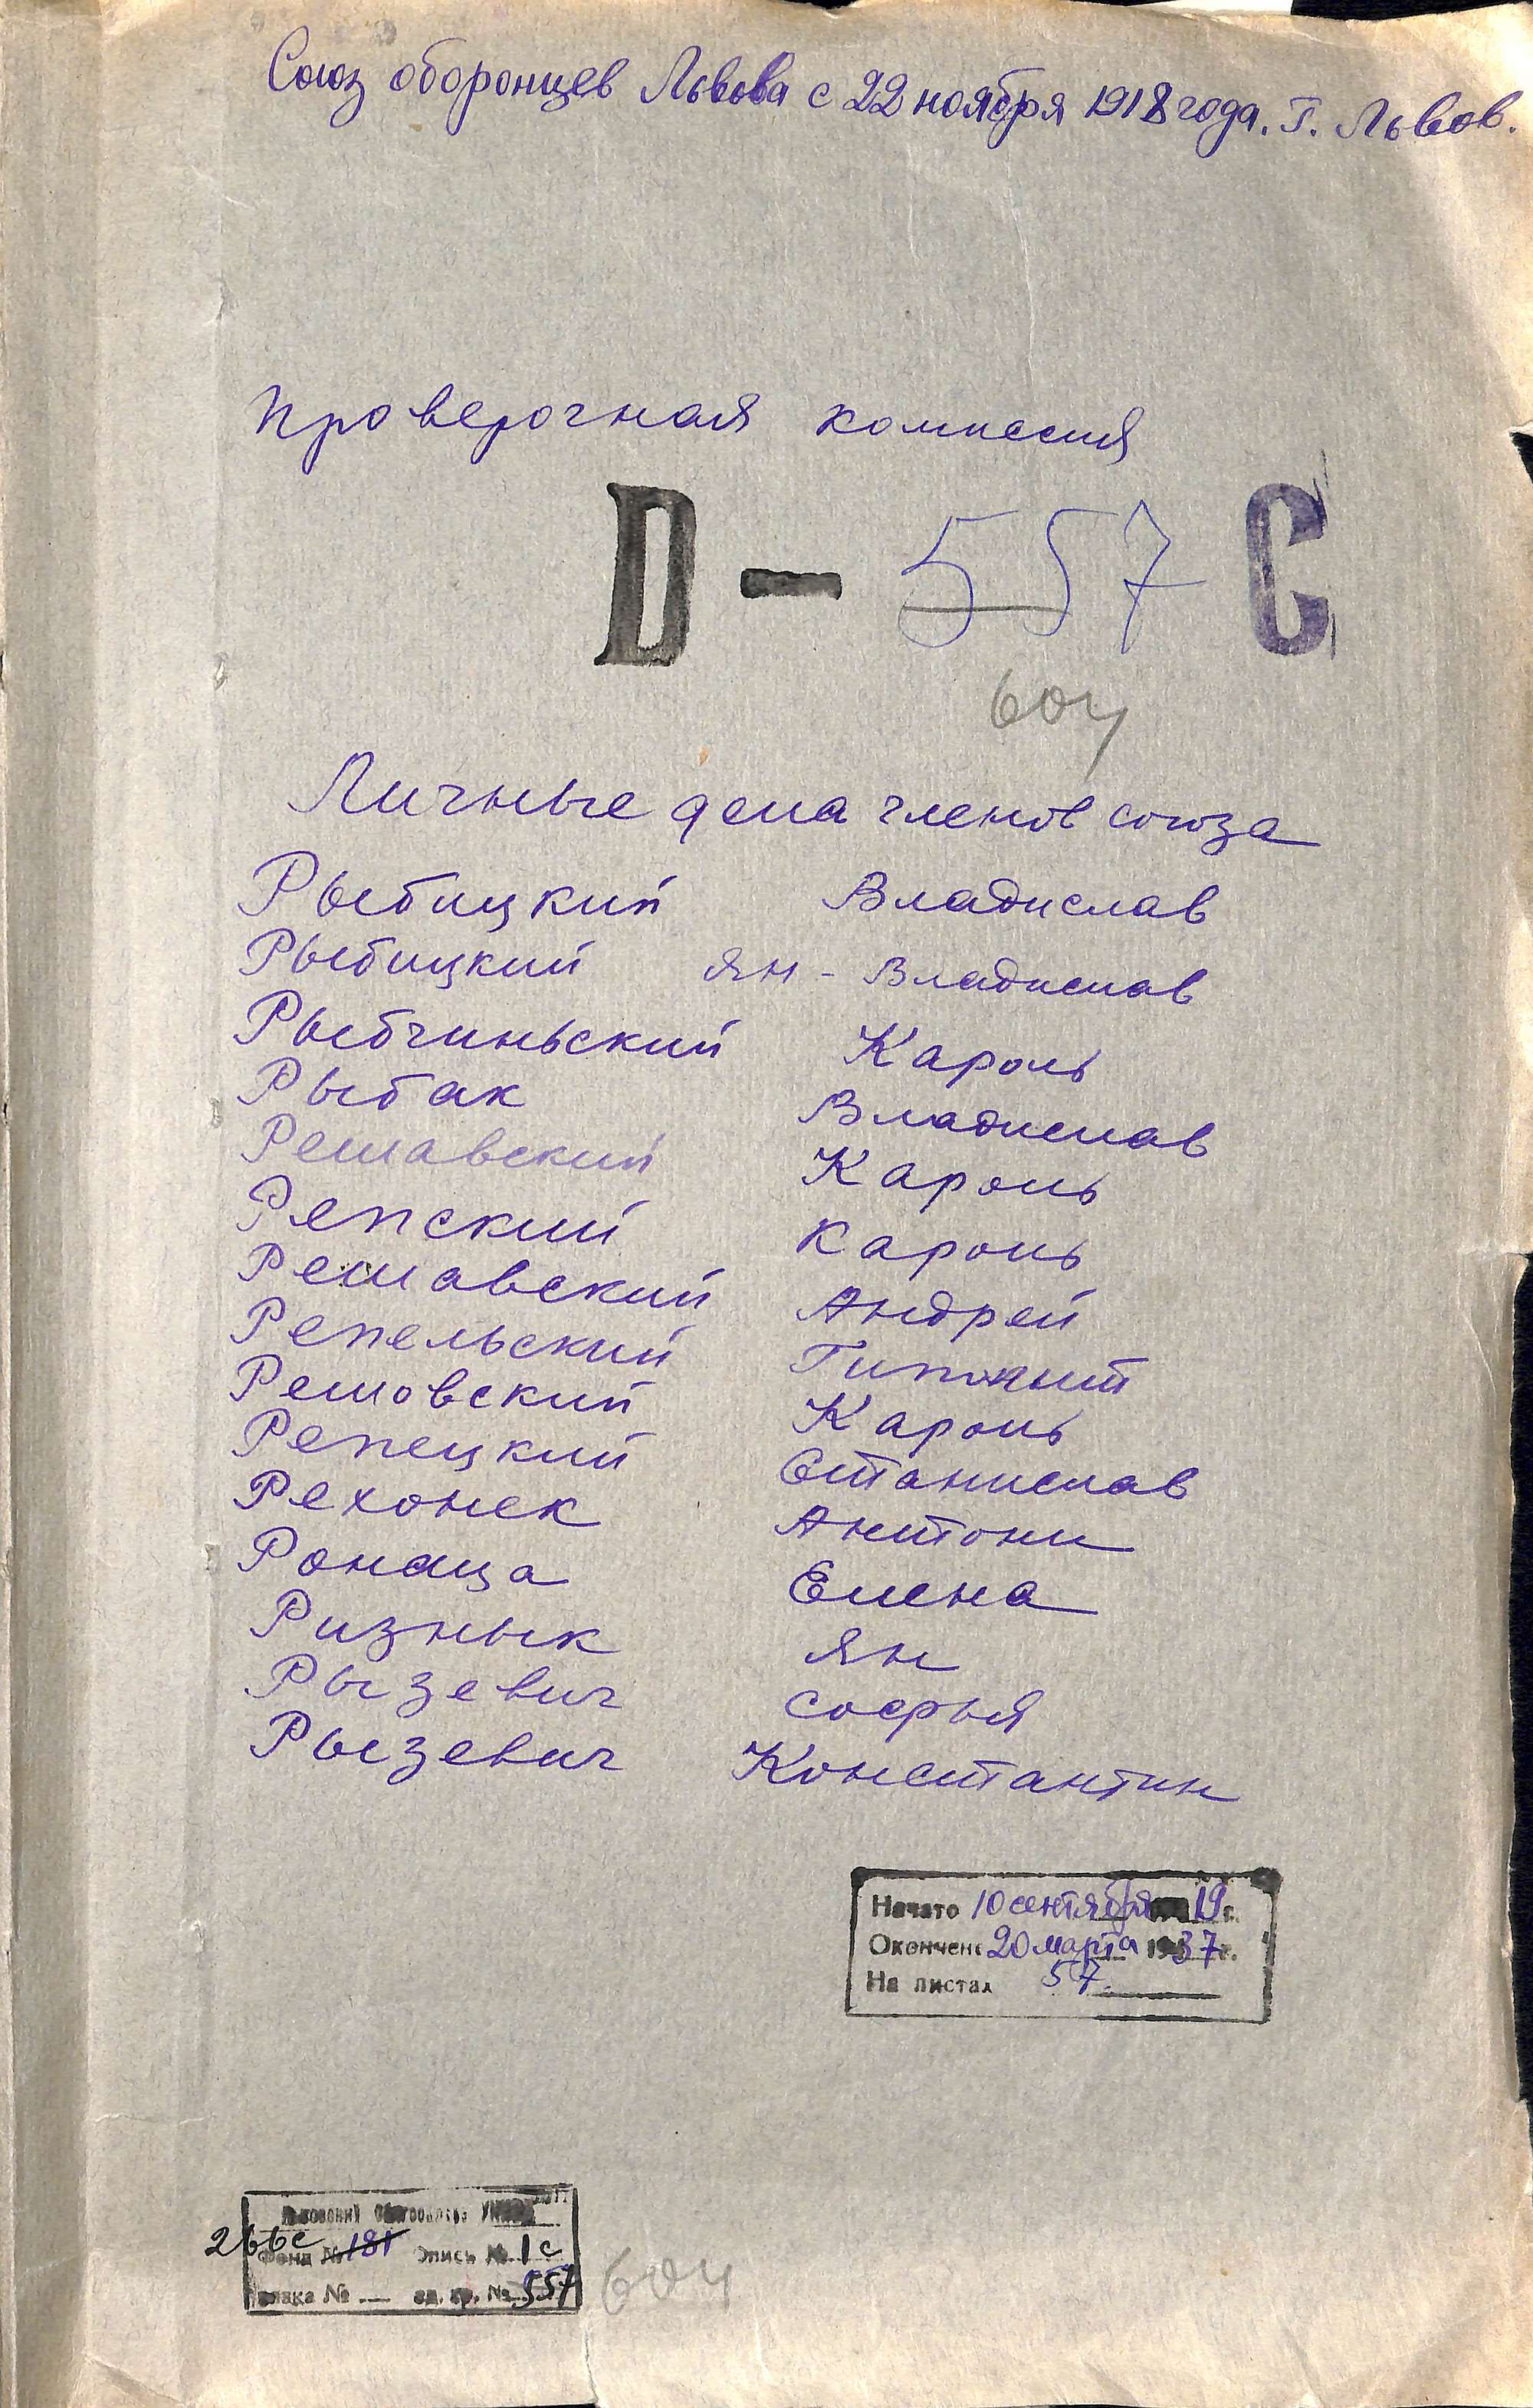 Союз оборонцев Львова с 22 ноября 1918 года. Г. Львов.
Проверочная комиссия
D — 557 C
604
Личные дела членов союза
Рыбицкий Владислав
Рыбицкий Ян - Владислав
Рыбчиньский Кароль
Рыбак Владислав
Решавский Кароль
Репский Кароль
Решавский Андрей
Репельский Гипполит
Решовский Кароль
Репецкий Станислав
Рехонек Антони
Ронаца Елена
Ризнык Ян
Рызевич Софья
Рызевич Константин
Начато 10 сентября 19 г.
Окончено 20 марта 1937 г.
На листах 57.
Львовский
266с Фонд № 181 Опись № 1с
Связка № — ед. хр. № 557
604